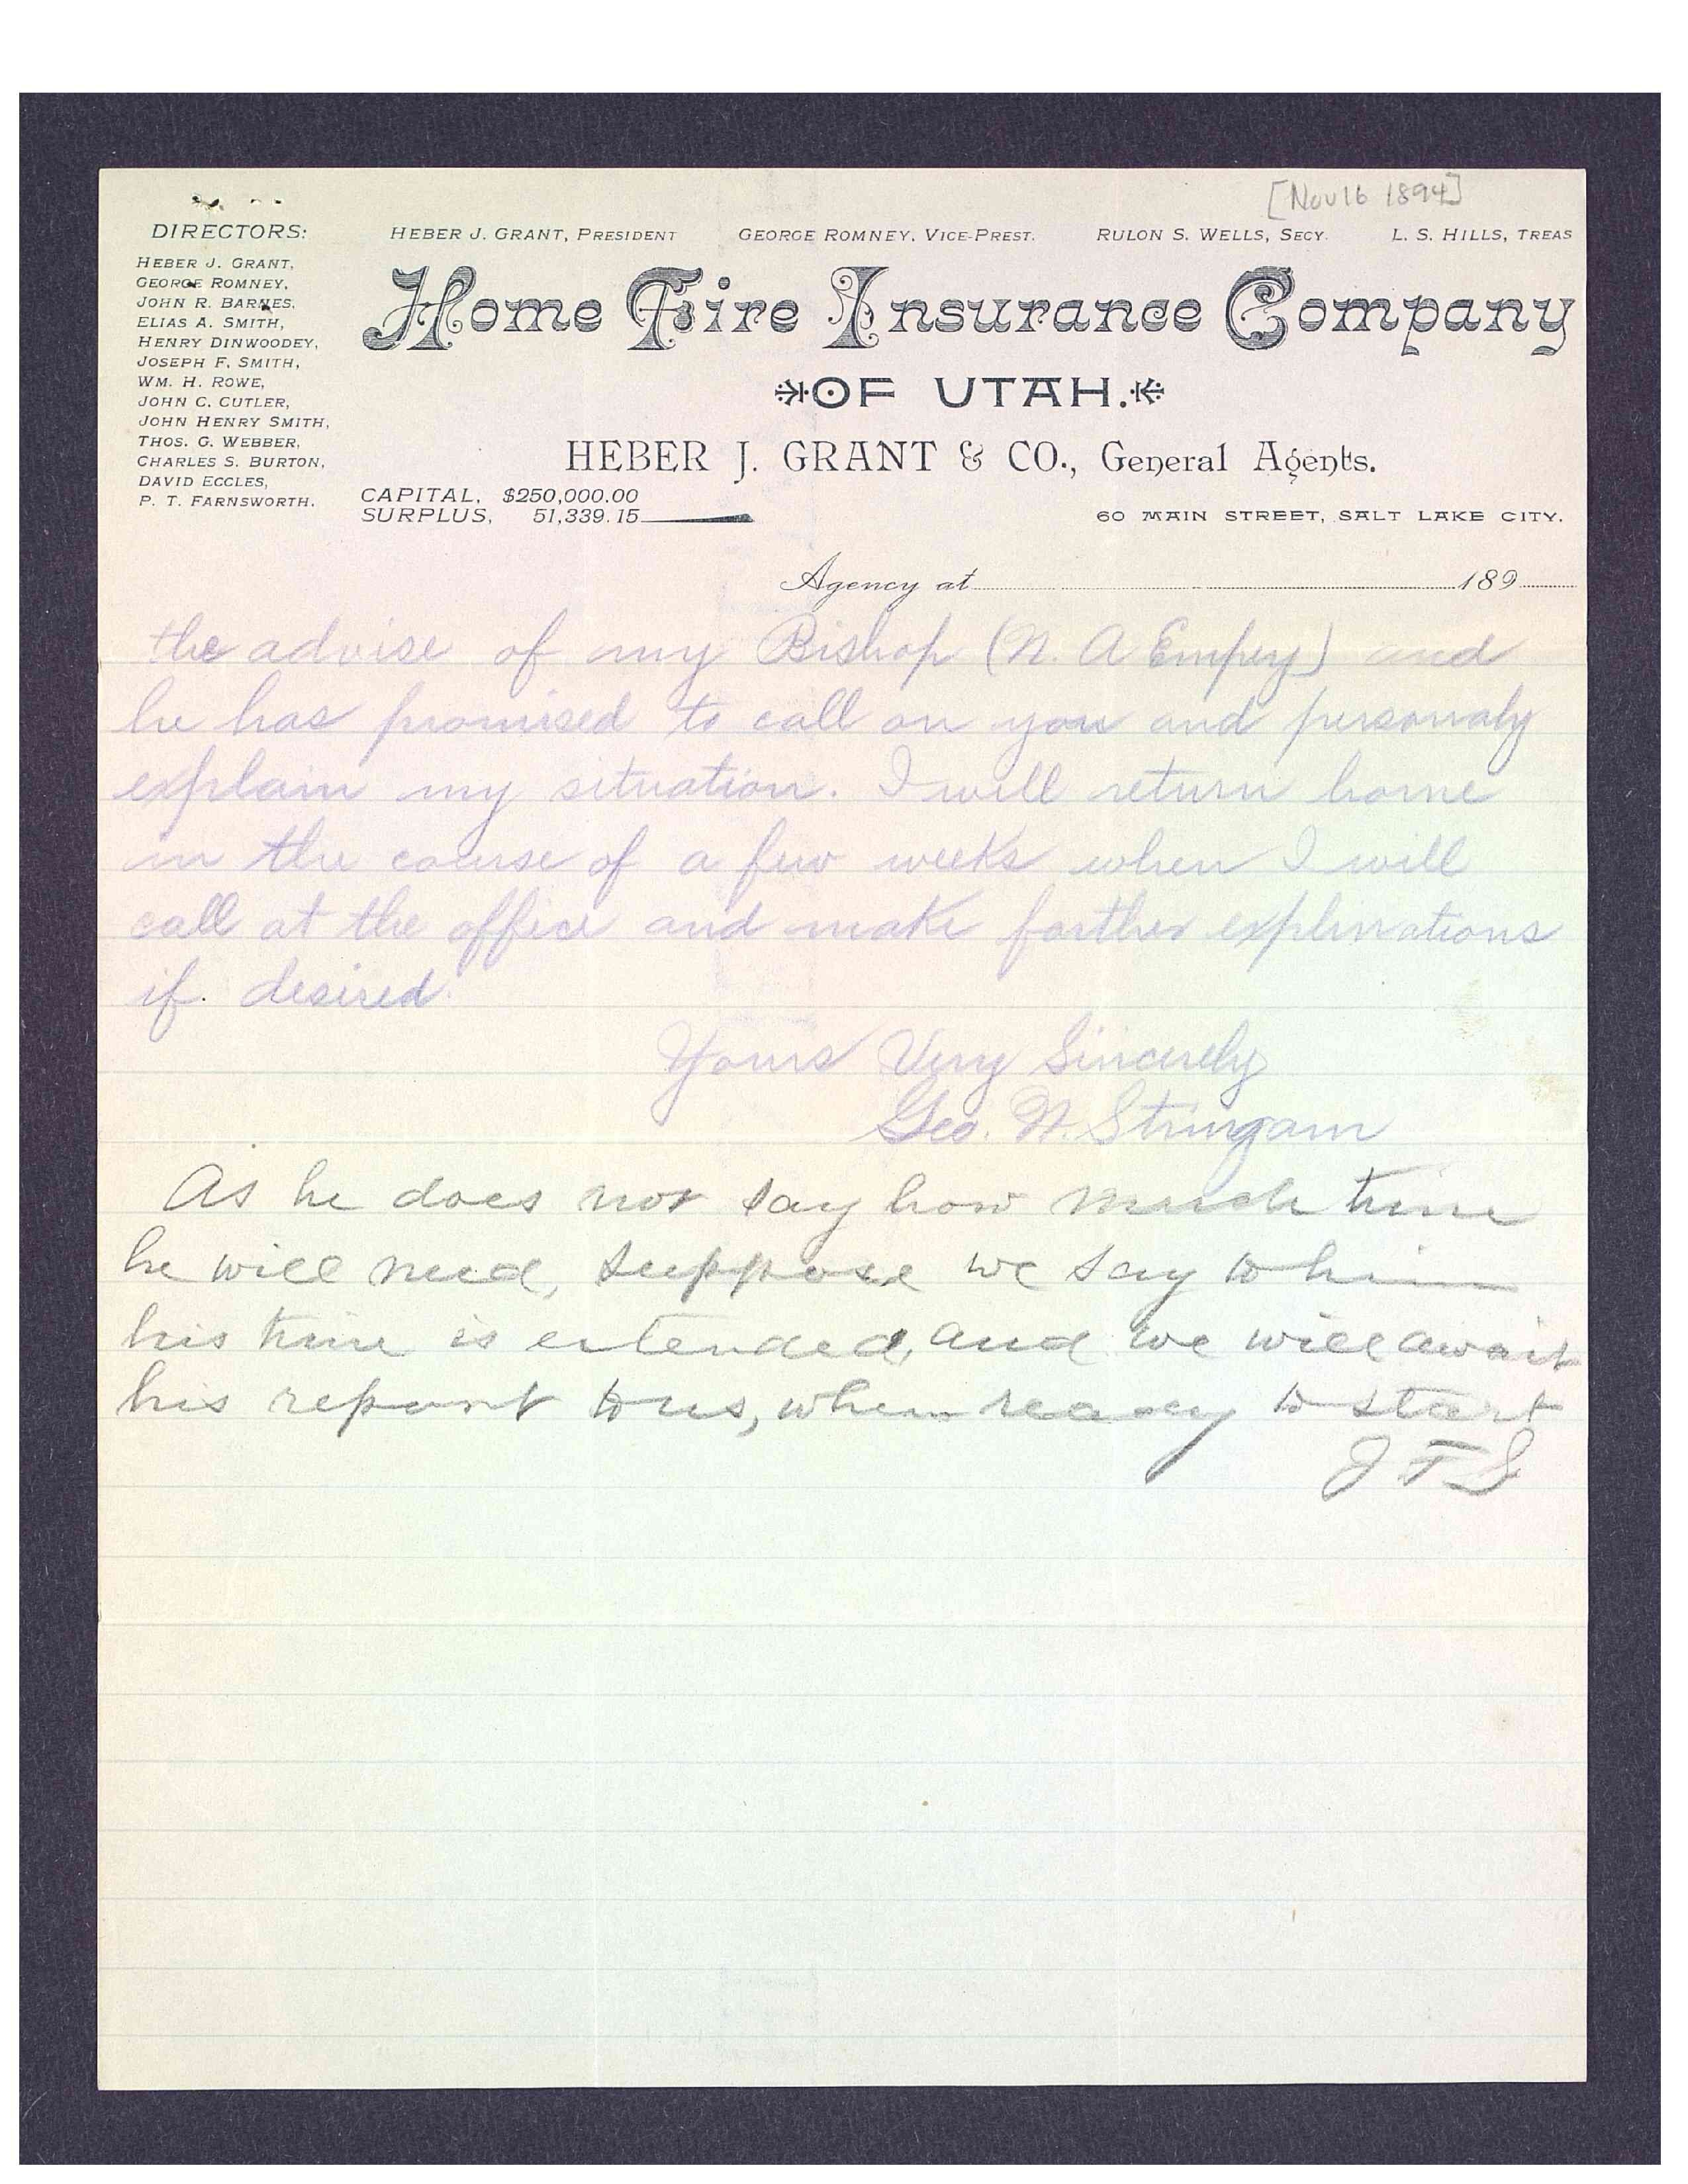 [Nov 16 1894]
DIRECTORS:
HEBER J. GRANT,
GEORGE ROMNEY,
JOHN R. BARNES,
ELIAS A. SMITH,
HENRY DINWOODEY,
JOSEPH F. SMITH,
WM. H. ROWE,
JOHN C. CUTLER,
JOHN HENRY SMITH,
THOS. G. WEBBER,
CHARLES S. BURTON,
DAVID ECCLES,
P. T. FARNSWORTH.
HEBER J. GRANT, PRESIDENT GEORGE ROMNEY, VICE-PREST. RULON S. WELLS, SECY. L. S. HILLS, TREAS
Home Fire Insurance Company
OF UTAH.
HEBER J. GRANT & CO., General Agents.
CAPITAL, $250,000.00
SURPLUS, 51,339.15
60 MAIN STREET, SALT LAKE CITY.
Agency at 189
the advise of my Bishop (N. A Empey) and
he has promised to call on you and personaly
explain my situation. I will return home
in the course of a few weeks when I will
call at the office and make farther explinations
if desired
Yours Very Sincerely
Geo. W. Stringam
As he does not say how much time
he will need, suppose we say to him
his time is extended, and we will await
his report to us, when ready to start
J F S